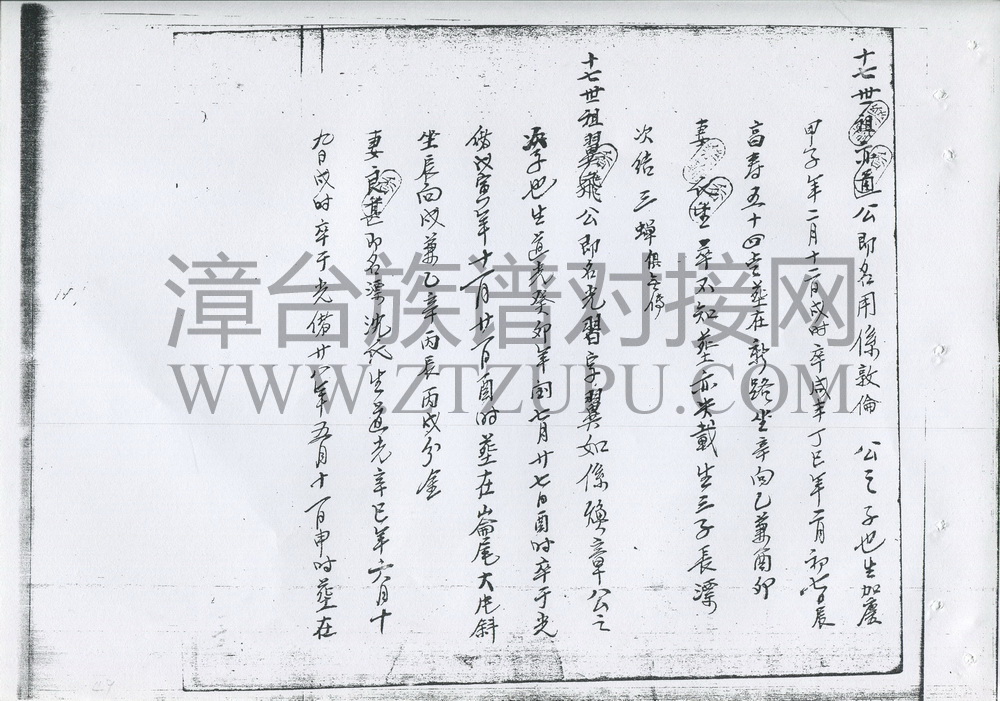 十七世祖亦直公即名用係敦倫 公之子也生加慶
甲子年二月十二日戌时卒咸丰丁巳年二月初七日辰
高寿五十四岁葬在新路坐辛向乙兼酉卯
妻 坐 卒不知葬亦失載生三子長漂
次结三蟬俱无傳
十七世祖翼飛公即名光習字翼如係煥章公之
次子也生道光癸卯年闰七月廿七日酉时卒于光
绪戊寅年十二月廿一日酉时葬在崙尾大片斜
坐辰向戌兼乙辛丙辰丙戌分金
妻良甚即名漂沈氏生道光辛巳年六月十
九日戌时卒于光绪廿八年五月十一日申时葬在
漳台族谱对接网
WWW.ZTZUPU.COM